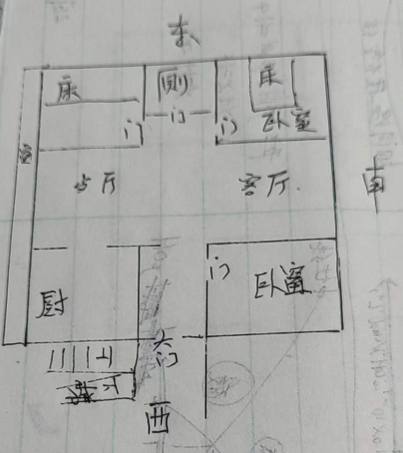 东
床
厕
床
门
门
门
卧室
客厅
南
门
卧室
厨
大门
上
下
西